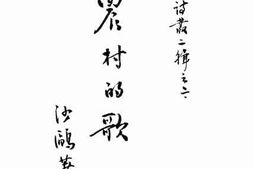 詩叢二輯之六
農村的歌
沙鷗著